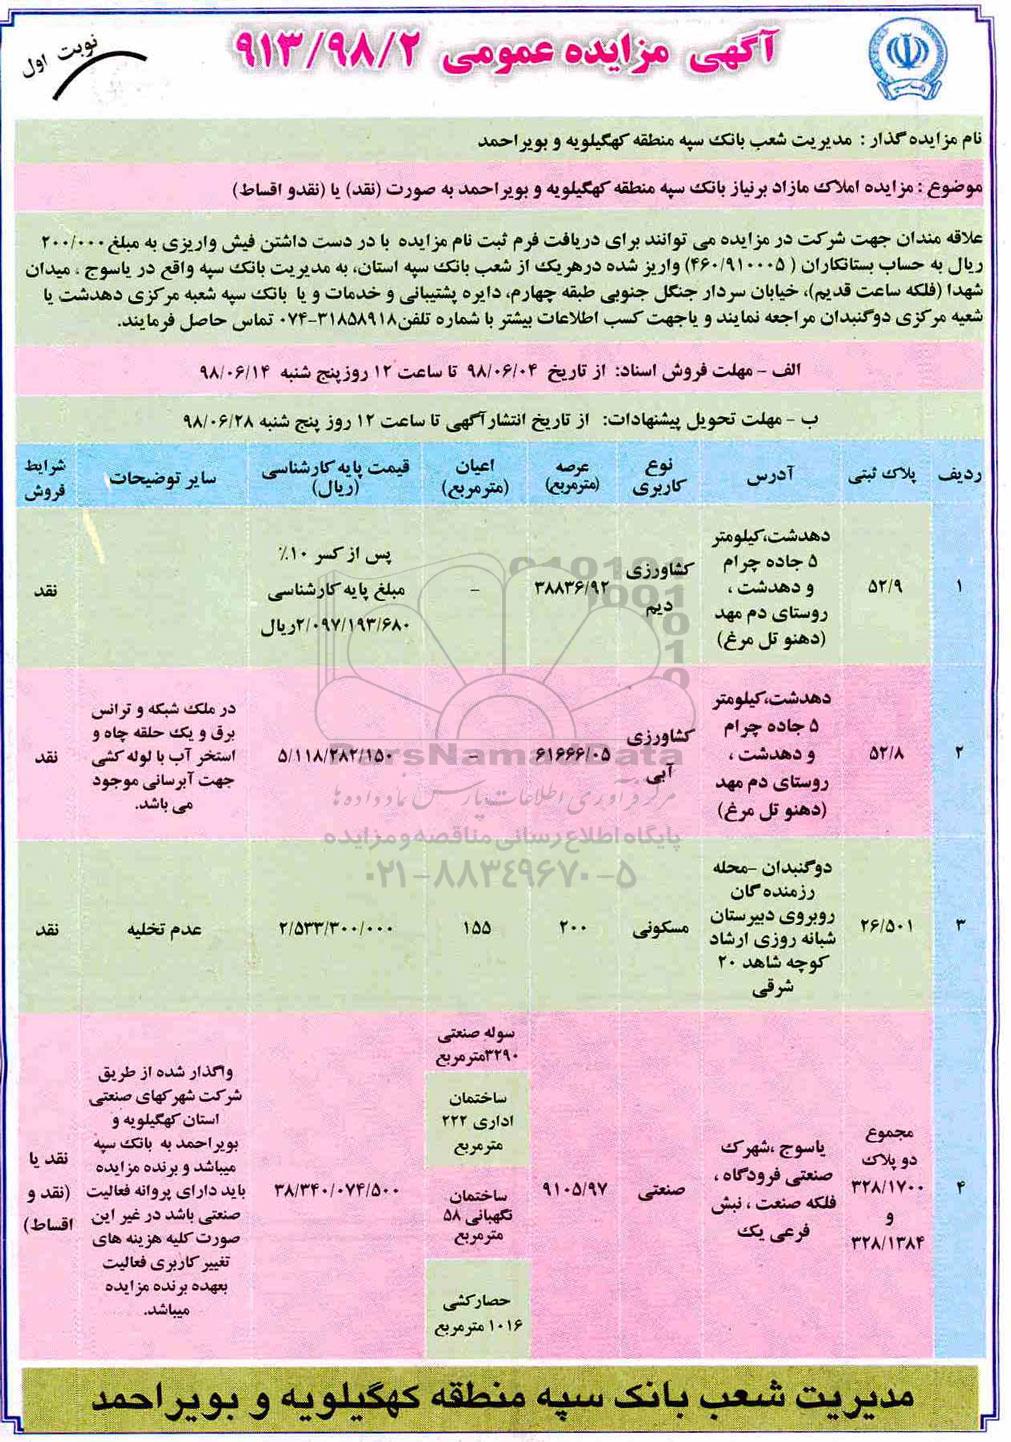 آگهی مزایده عمومی ۹۱۳/۹۸/۲
نوبت اول
نام مزایده گذار : مدیریت شعب بانک سپه منطقه کهگیلویه و بویراحمد
موضوع : مزایده املاک مازاد برنیاز بانک سپه منطقه کهگیلویه و بویراحمد به صورت (نقد) یا (نقدو اقساط)
علاقه مندان جهت شرکت در مزایده می توانند برای دریافت فرم ثبت نام مزایده با در دست داشتن فیش واریزی به مبلغ ۲۰۰/۰۰۰
ریال به حساب بستانکاران ( ۴۶۰/۹۱۰۰۰۵) واریز شده درهریک از شعب بانک سپه استان، به مدیریت بانک سپه واقع در یاسوج ، میدان
شهدا (فلکه ساعت قدیم)، خیابان سردار جنگل جنوبی طبقه چهارم، دایره پشتیبانی و خدمات و یا بانک سپه شعبه مرکزی دهدشت یا
شعبه مرکزی دوگنبدان مراجعه نمایند و یاجهت کسب اطلاعات بیشتر با شماره تلفن ۳۱۸۵۸۹۱۸-۰۷۴ تماس حاصل فرمایند.
الف - مهلت فروش اسناد: از تاریخ ۹۸/۰۶/۰۴ تا ساعت ۱۲ روزپنج شنبه ۹۸/۰۶/۱۴
ب - مهلت تحویل پیشنهادات: از تاریخ انتشارآگهی تا ساعت ۱۲ روز پنج شنبه ۹۸/۰۶/۲۸
ردیف
پلاک ثبتی
آدرس
نوع
کاربری
عرصه
(مترمربع)
اعیان
(مترمربع)
قیمت پایه کارشناسی
(ریال)
سایر توضیحات
شرایط
فروش
۱
۵۲/۹
دهدشت،کیلومتر
۵ جاده چرام
و دهدشت ،
روستای دم مهد
(دهنو تل مرغ)
کشاورزی
دیم
۳۸۸۳۶/۹۲
-
پس از کسر ۱۰٪
مبلغ پایه کارشناسی
۲/۰۹۷/۱۹۳/۶۸۰ریال
نقد
۲
۵۲/۸
دهدشت،کیلومتر
۵ جاده چرام
و دهدشت ،
روستای دم مهد
(دهنو تل مرغ)
کشاورزی
آبی
۶۱۶۶۶/۰۵
-
۵/۱۱۸/۲۸۲/۱۵۰
در ملک شبکه و ترانس
برق و یک حلقه چاه و
استخر آب با لوله کشی
جهت آبرسانی موجود
می باشد.
نقد
ParsNamadData
مرکز فرآوری اطلاعات پارس نماد داده ها
پایگاه اطلاع رسانی مناقصه و مزایده
۰۲۱-۸۸۳۴۹۶۷۰-۵
۳
۲۶/۵۰۱
دوگنبدان -محله
رزمنده گان
روبروی دبیرستان
شبانه روزی ارشاد
کوچه شاهد ۲۰
شرقی
مسکونی
۲۰۰
۱۵۵
۲/۵۳۳/۳۰۰/۰۰۰
عدم تخلیه
نقد
۴
مجموع
دو پلاک
۳۲۸/۱۷۰۰
و
۳۲۸/۱۳۸۴
یاسوج ،شهرک
صنعتی فرودگاه ،
فلکه صنعت ، نبش
فرعی یک
صنعتی
۹۱۰۵/۹۷
سوله صنعتی
۳۲۹۰مترمربع
ساختمان
اداری ۲۲۲
مترمربع
ساختمان
نگهبانی ۵۸
مترمربع
حصارکشی
۱۰۱۶ مترمربع
۳۸/۳۴۰/۰۷۴/۵۰۰
واگذار شده از طریق
شرکت شهرکهای صنعتی
استان کهگیلویه و
بویراحمد به بانک سپه
میباشد و برنده مزایده
باید دارای پروانه فعالیت
صنعتی باشد در غیر این
صورت کلیه هزینه های
تغییر کاربری فعالیت
بعهده برنده مزایده
میباشد.
نقد یا
(نقد و
اقساط)
مدیریت شعب بانک سپه منطقه کهگیلویه و بویراحمد